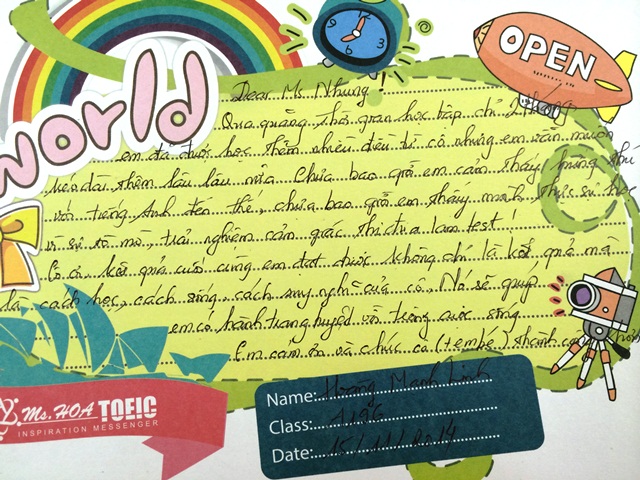 World
OPEN
Dear Ms Nhung!
Qua quãng thời gian học tập chỉ 2 tháng
em đã được học thêm nhiều điều từ cô nhưng em vẫn muốn
kéo dài thêm lâu lâu nữa. Chưa bao giờ em cảm thấy hứng thú
với tiếng Anh đến thế, chưa bao giờ em thấy mình thực sự học
vì sự tò mò, trải nghiệm cảm giác thi đua làm test!
Cô ạ, kết quả cuối cùng em đạt được không chỉ là kết quả mà
là cách học, cách sống, cách suy nghĩ của cô. Nó sẽ giúp
em có hành trang luyện với trong cuộc sống
Em cảm ơn và chúc cô (tem bé) thành công hơn
Ms. HOA TOEIC
INSPIRATION MESSENGER
Name: Hoàng Mạnh Linh
Class: A196
Date: 15/11/2014